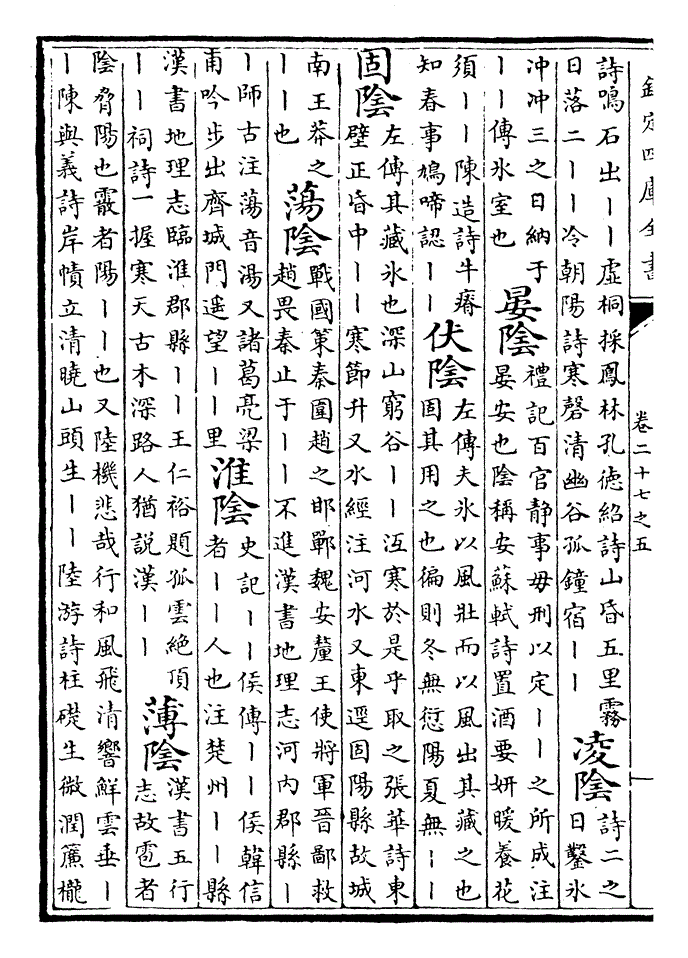 欽定四庫全書
卷二十七之五
詩鳴石出｜｜虛桐採鳳林孔德紹詩山昏五里霧
日落二｜｜冷朝陽詩寒磬清幽谷孤鐘宿｜｜
凌陰
詩二之
日鑿氷
沖冲三之日納于
｜｜傳氷室也
晏陰
禮記百官静事毋刑以定｜｜之所成注
晏安也陰稱安蘇軾詩置酒要妍暖養花
須｜｜陳造詩牛瘠
知春事鳩啼認｜｜
伏陰
左傳夫氷以風壯而以風出其藏之也
固其用之也徧則冬無愆陽夏無｜｜
固陰
左傳其藏氷也深山窮谷｜｜沍寒於是乎取之張華詩東
壁正昏中｜｜寒節升又水經注河水又東逕固陽縣故城
南王莽之
｜｜也
蕩陰
戰國策秦圍趙之邯鄲魏安釐王使將軍晉鄙救
趙畏秦止于｜｜不進漢書地理志河内郡縣｜
｜師古注蕩音湯又諸葛亮梁
甫吟步出齊城門遥望｜｜里
淮陰
史記｜｜侯傳｜｜侯韓信
者｜｜人也注楚州｜｜縣
漢書地理志臨淮郡縣｜｜王仁裕題孤雲絶頂
｜｜祠詩一握寒天古木深路人猶説漢｜｜
薄陰
漢書五行
志故雹者
陰脅陽也霰者陽｜｜也又陸機悲哉行和風飛清響鮮雲垂｜
｜陳與義詩岸幘立清曉山頭生｜｜陸游詩柱礎生微潤簾櫳